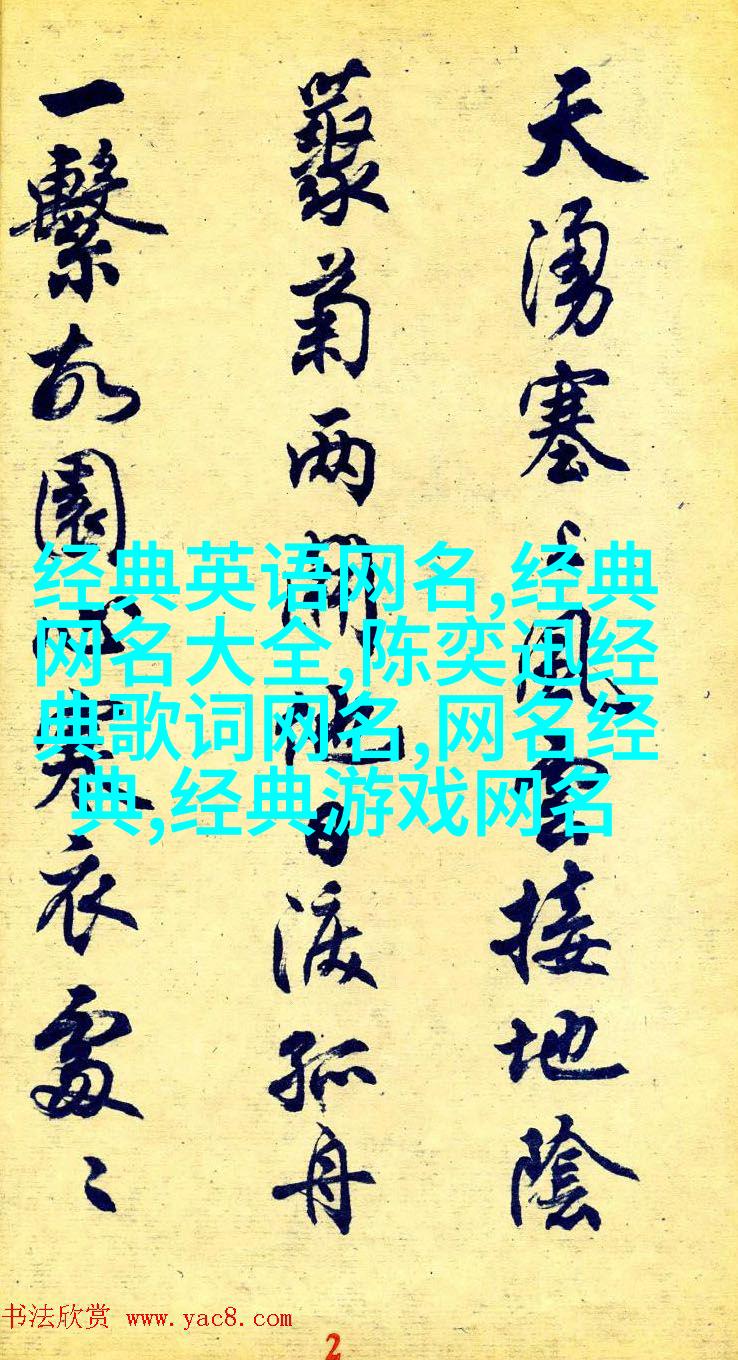 天湧塞上風雲接地陰
叢菊两開他日淚孤舟
一繫故園心寒衣處々
经典英语网名,经典
网名大全,陈奕迅经
典歌词网名,网名经
典,经典游戏网名
书法欣赏 www.yac8.com
2